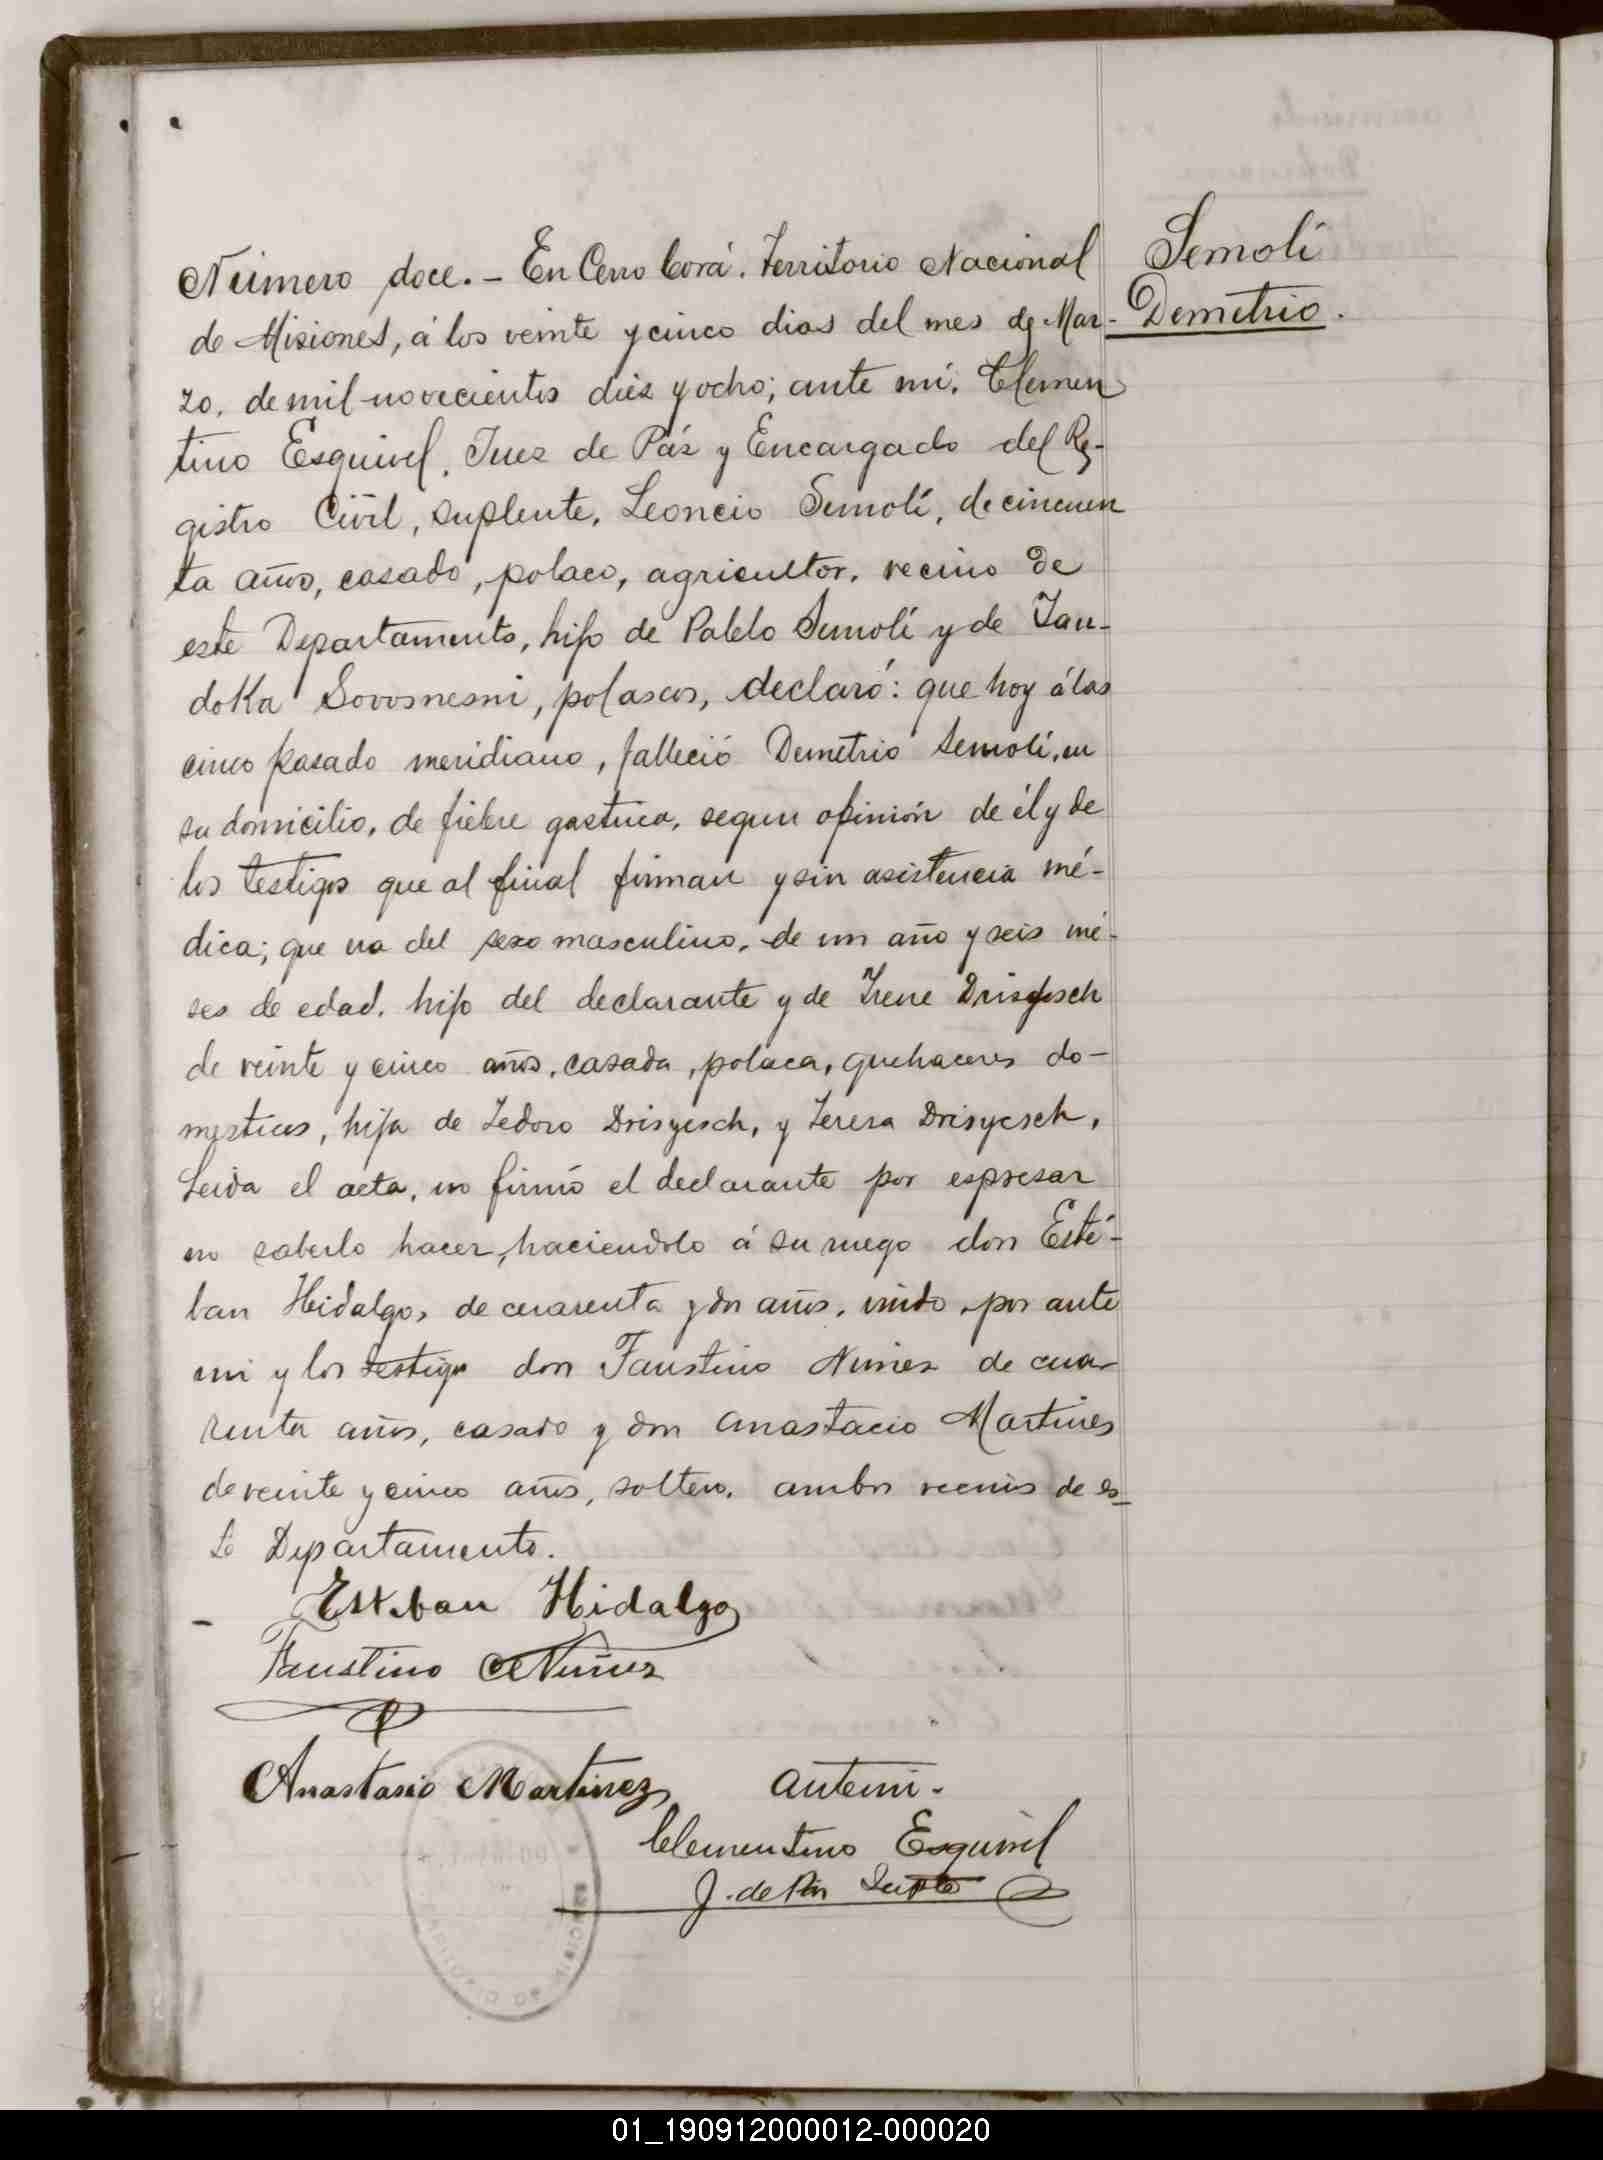 Semolí
Demetrio.
Número doce. - En Cerro Corá. Territorio Nacional
de Misiones, á los veinte y cinco dias del mes de Mar-
zo, de mil novecientos diez y ocho; ante mí, Clemen
tino Esquivel, Juez de Páz y Encargado del Re-
gistro Civil, suplente, Leoncio Semolí, de cincuen
ta años, casado, polaco, agricultor, vecino de
este Departamento, hijo de Pablo Semolí y de Yau-
doka Sovosnesni, polascos, declaró: que hoy á las
cinco pasado meridiano, falleció Demetrio Semolí, en
su domicilio, de fiebre gastrica, segun opinión de él y de
los testigos que al final firman y sin asistencia mé-
dica; que era del sexo masculino, de un año y seis mé-
ses de edad, hijo del declarante y de Irene Drisyesch
de veinte y cinco años, casada, polaca, quehaceres do-
mesticos, hija de Tedoro Drisyesch, y Teresa Drisyesch,
Leida el acta, no firmó el declarante por espresar
no saberlo hacer, haciendolo á su ruego don Esté-
ban Hidalgo, de cuarenta y dos años, viudo, por ante
mi y los testigos don Faustino Nuñez de cua-
renta años, casado y don Anastacio Martines
de veinte y cinco años, soltero, ambos vecinos de es-
te Departamento.
Esteban Hidalgo
Faustino Nuñez
Anastasio Martinez
Ante mi.
Clementino Esquivel
J. de Paz Supte
TERRITORIO DE MISIONES
01_190912000012-000020